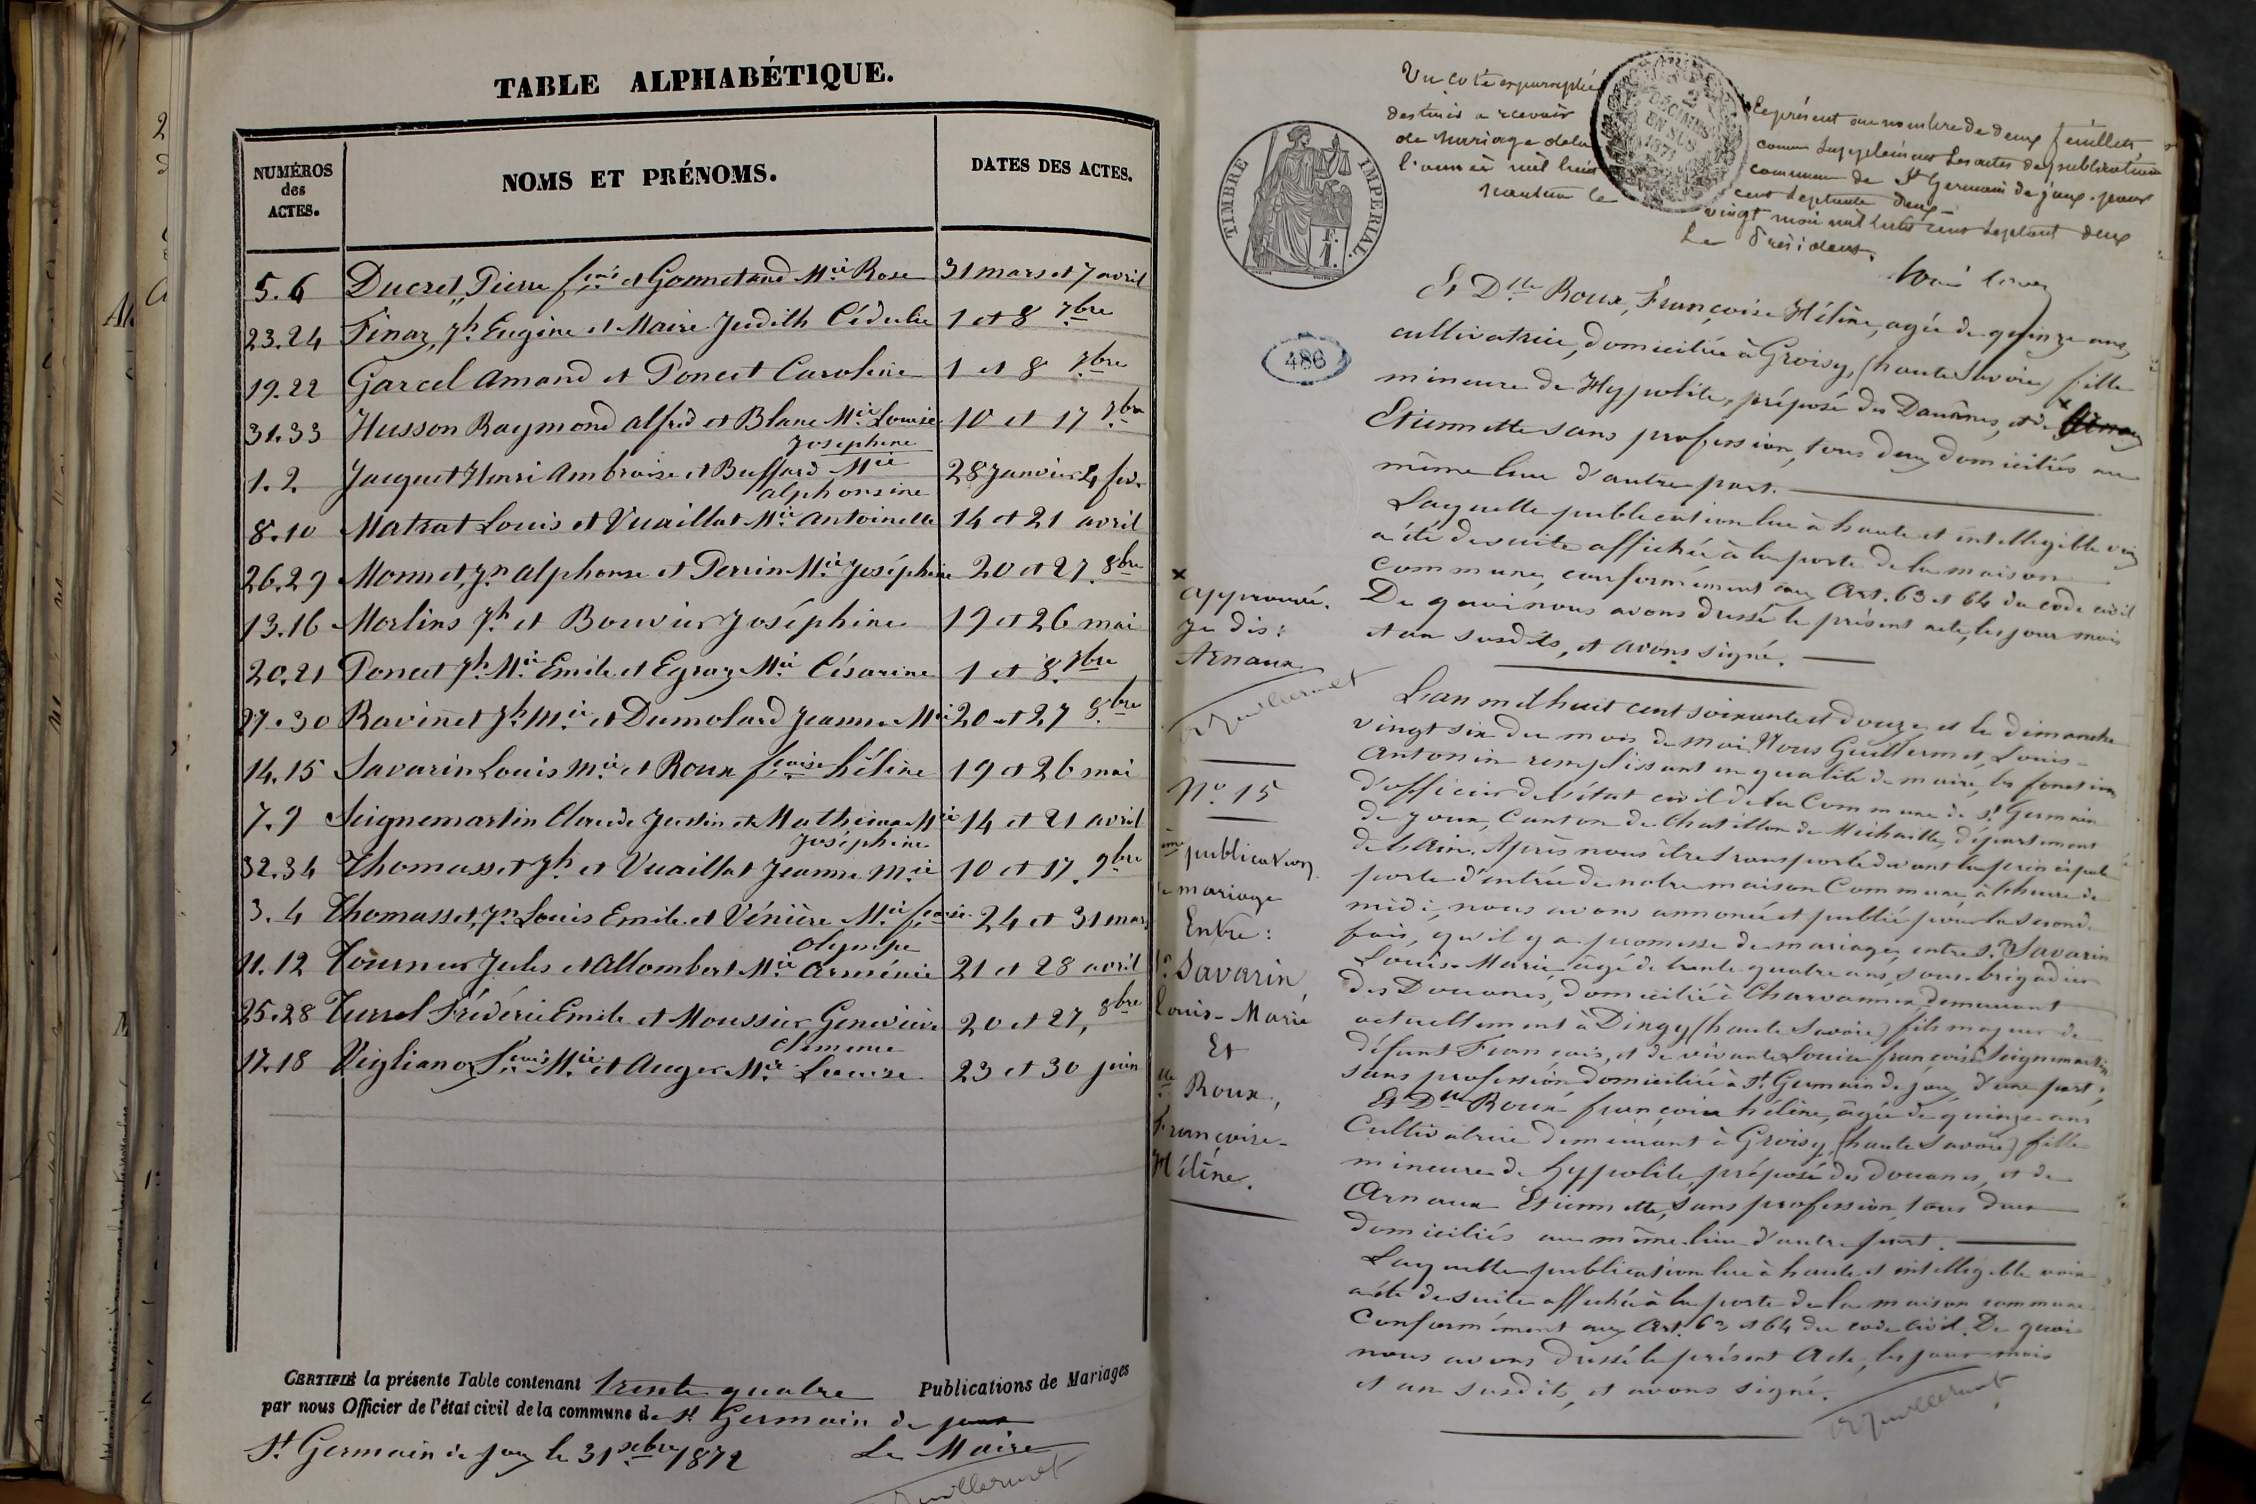 TABLE ALPHABÉTIQUE.
NUMÉROS des ACTES. NOMS ET PRÉNOMS. DATES DES ACTES.
5.6 Ducret, Pierre fçois et Gonnetand Mie Rose 31 mars et 7 avril
23.24 Finaz, Jh Eugène et Maire Judith Cédulie 1 et 8 7bre
19.22 Garcel Amand et Poncet Caroline 1 et 8 7bre
31.33 Husson Raymond Alfred et Blanc Mie Louise 10 et 17 9bre
Joséphine
1.2 Jacquet Henri Ambroise et Buffard Mie 28 Janvier 4 fév.
alphonsine
8.10 Matrat Louis et Vuaillat Mie Antoinette 14 et 21 avril
26.29 Monnet, Jn Alphonse et Perrin Mie Joséphine 20 et 27. 8bre
13.16 Morlins Jh et Bouvier Joséphine 19 et 26 mai
20.21 Poncet Jh Mie Emile et Egraz Mie Césarine 1 et 8. 7bre
27.30 Ravinet Jh Mie et Dumolard Jeanne Mie 20 et 27 8bre
14.15 Savarin Louis Mie et Roux fçoise hélène 19 et 26 mai
7.9 Seignemartin Claude Justin et Mathieu Mie 14 et 21 avril
Joséphine
32.34 Thomasset Jh et Vuaillat Jeanne Mie 10 et 17. 9bre
3.4 Thomasset, Jn Louis Emile et Vénière Mie fçoise 24 et 31 mars
Olympe
11.12 Tournier Jules et Allombert Mie Arménie 21 et 28 avril
25.28 Turrel Frédéric Emile et Moussier Geneviève 20 et 27, 8bre
clémence
17.18 Viglianoz, fçois Mie et Auger Mie Louise 23 et 30 juin
CERTIFIÉ la présente Table contenant trente quatre Publications de Mariages
par nous Officier de l'état civil de la commune de St Germain de joux
St Germain de Joux le 31 xbre 1872 Le Maire
Guillermet
Vu coté et paraphé
destiné à recevoir
de mariage de la
l'année mil huit
Nantua le
TIMBRE IMPERIAL.
1 F.
2
DÉCIMES
EN SUS
1871
le présent au nombre de deux feuillets
comme supplément les actes de publication
commune de St Germain de joux. pour
cent septante deux
vingt mai mil huit cent septant deux
Le Président,
486
Et Dlle Roux, Françoise Hélène, agée de quinze ans,
cultivatrice, domiciliée à Groisy, (haute Savoie) fille
mineure de Hypolite, préposé des Douanes, et de
Etiennette sans profession, tous deux domiciliés au
même lieu d'autre part.
Laquelle publication lue à haute et intelligible voix
a été de suite affichée à la porte de la maison
Commune, conformément aux Art. 63 et 64 du code civil
De quoi nous avons dressé le présent acte, les jour mois
et an susdits, et avons signé.
x
approuvé.
Je dis:
Arnaux
Guillermet
L'an mil huit cent soixante et douze et le dimanche
vingt six du mois de mai, Nous Guillermet, Louis-
Antonin remplissant en qualité de maire, les fonctions
d'officier de l'état civil de la Commune de St Germain
de Joux, Canton de Chatillon de Michaille, département
de l'Ain. Après nous être transporté devant la principale
porte d'entrée de notre maison Commune, à l'heure de
midi, nous avons annoncé et publié pour la seconde
fois, qu'il y a promesse de mariage, entre Sr Savarin
Louis-Marie, âgé de trente quatre ans, sous-brigadier
des Douanes, domicilié à Charvonnex, demeurant
actuellement à Dingy (haute Savoie) fils majeur de
défunt François, et de vivante Louise françoise Seignemartin
sans profession domiciliée à St Germain de joux, d'une part;
Et Dlle Roux françoise hélène, âgée de quinze ans
Cultivatrice demeurant à Groisy, (haute Savoie) fille
mineure de hypolite, préposé des douanes, et de
Arnaux Etiennette, sans profession, tous deux
domiciliés au même lieu d'autre part.
Laquelle publication lue à haute et intelligible voix
a été de suite affichée à la porte de la maison commune
Conformément aux Art. 63 et 64 du code civil. De quoi
nous avons dressé le présent Acte, les jour mois
et an susdits, et avons signé.
Guillermet
No. 15
publication
mariage
Entre:
Savarin
Louis-Marie
Et
Roux,
Françoise-
Hélène.